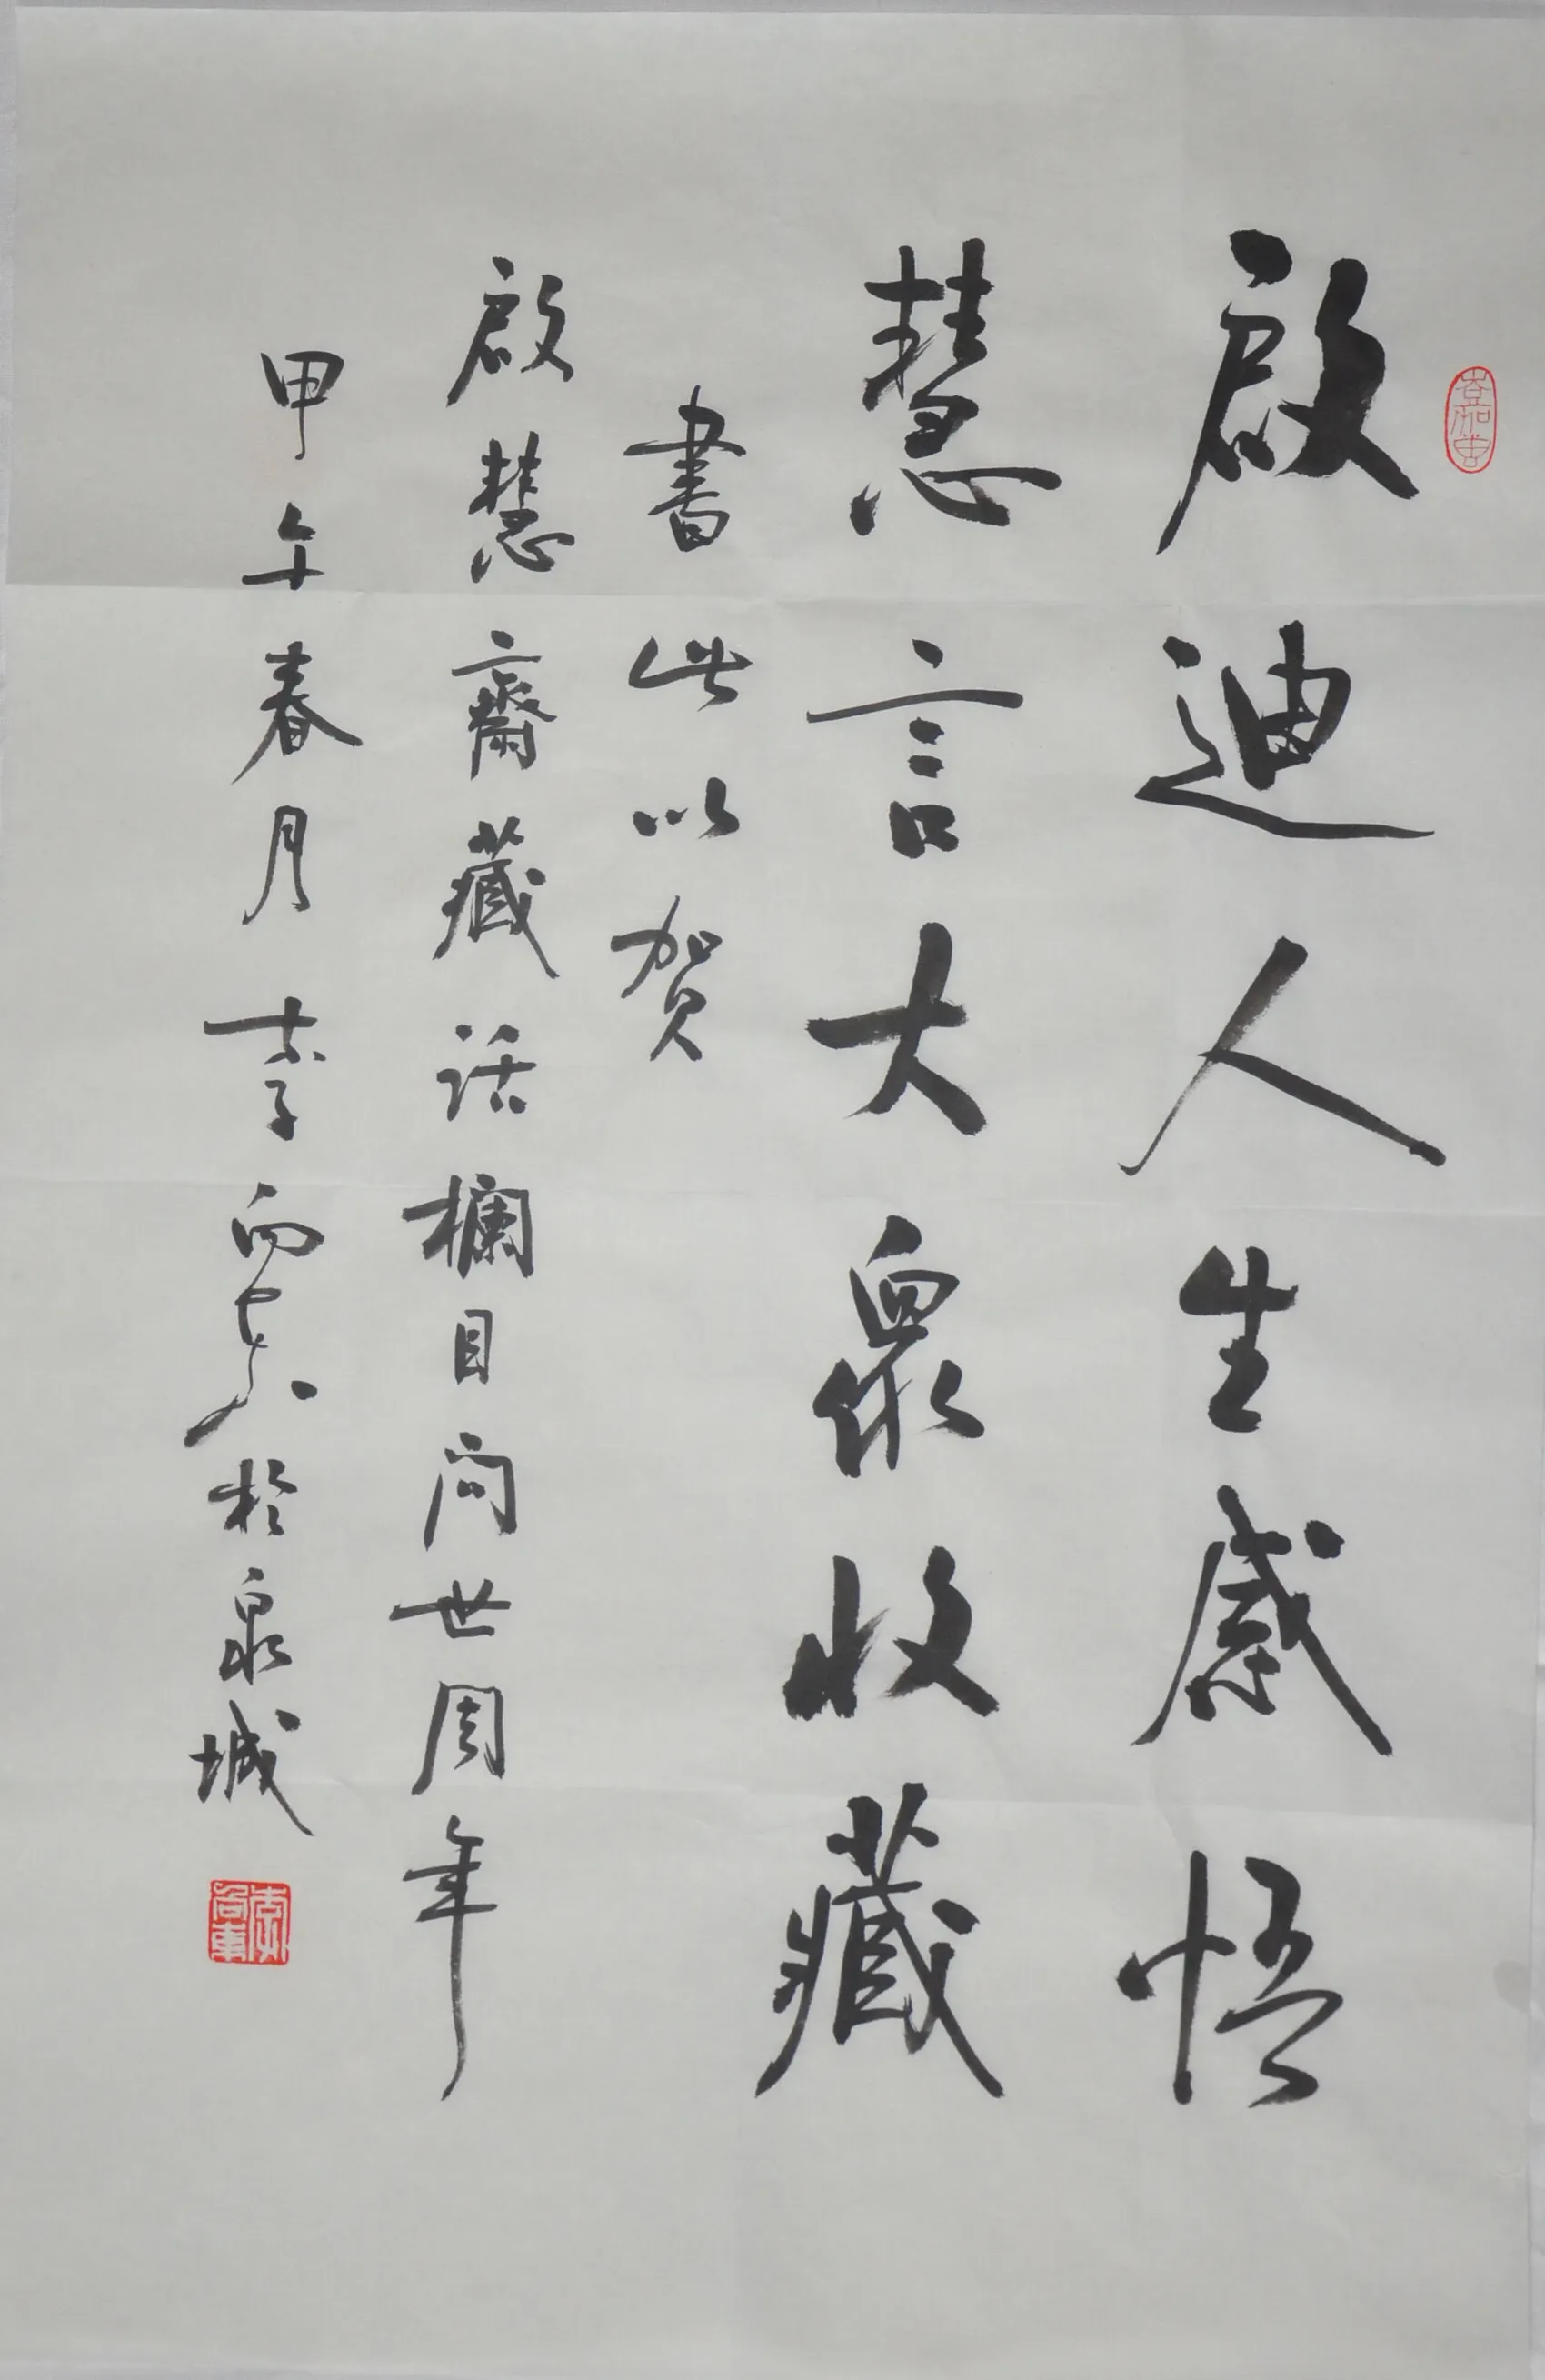 啟迪人生感悟
慧言大衆收藏
書此以賀
啟慧齋藏話欄目问世周年
甲午春月李向東於泉城